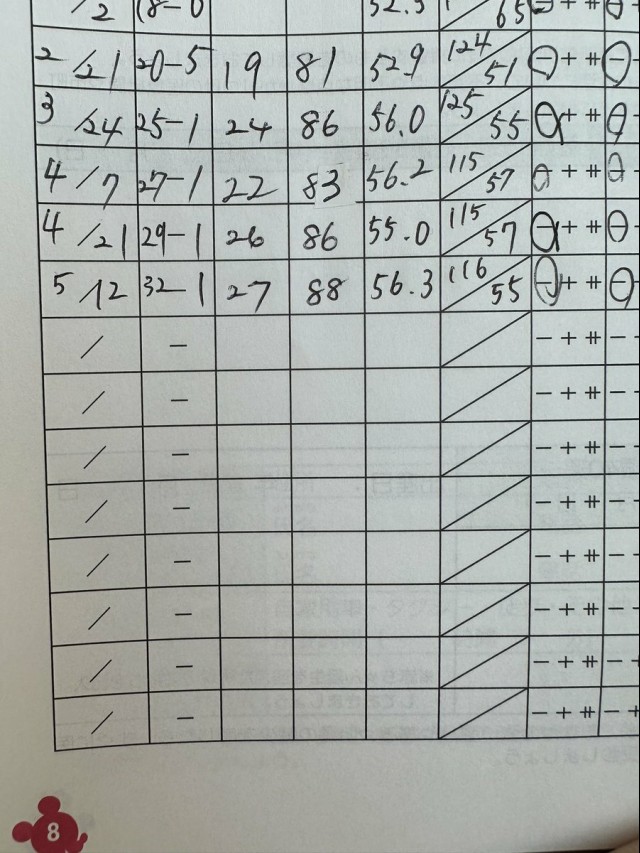 /2 18-0 52.5 / 65 ⊖ + ⧺ ⊖
2/21 20-5 19 81 52.9 124/51 ⊖ + ⧺ ⊖ -
3/24 25-1 24 86 56.0 125/55 ⊖ + ⧺ ⊖ -
4/7 27-1 22 83 56.2 115/57 ⊖ + ⧺ ⊖ -
4/21 29-1 26 86 55.0 115/57 ⊖ + ⧺ ⊖ -
5/12 32-1 27 88 56.3 116/55 ⊖ + ⧺ ⊖ -
/ - / - + ⧺ - +
/ - / - + ⧺ - +
/ - / - + ⧺ - +
/ - / - + ⧺ - +
/ - / - + ⧺ - +
/ - / - + ⧺ - +
/ - / - + ⧺ - +
/ - / - + ⧺ - +
8